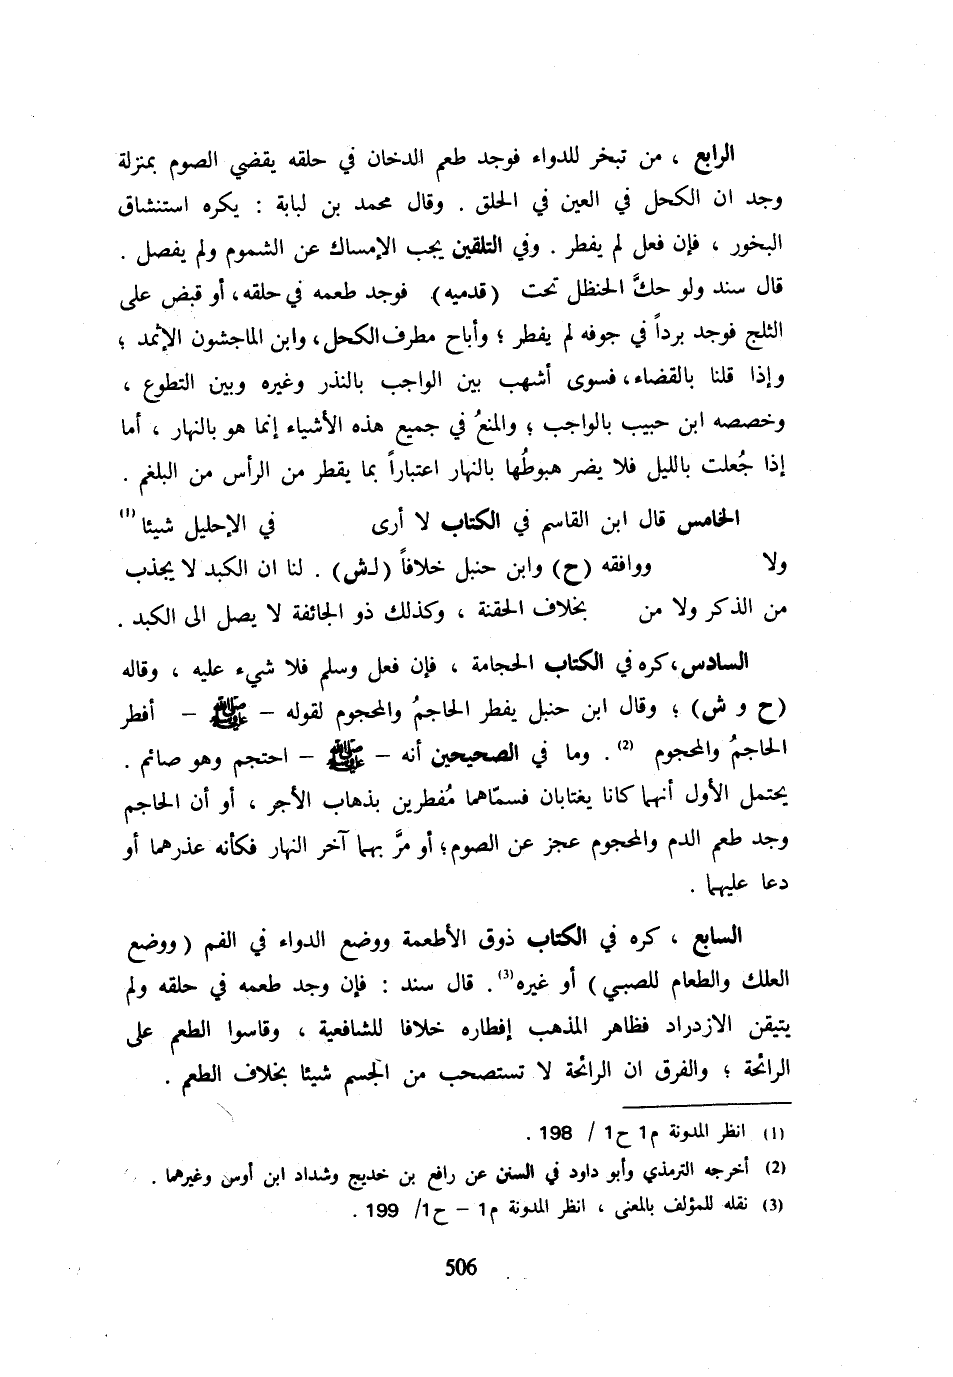 الرابع ، من تبخر للدواء فوجد طعم الدخان في حلقه يقضي الصوم بمنزلة
وجد ان الكحل في العين في الحلق . وقال محمد بن لبابة : يكره استنشاق
البخور ، فإن فعل لم يفطر . وفي التلقين يجب الإمساك عن الشموم ولم يفصل .
قال سند ولو حكَّ الحنظل تحت (قدميه) فوجد طعمه في حلقه، أو قبض على
الثلج فوجد برداً في جوفه لم يفطر ؛ وأباح مطرف الكحل، وابن الماجشون الإثمد ؛
وإذا قلنا بالقضاء، فسوى أشهب بين الواجب بالنذر وغيره وبين التطوع ،
وخصصه ابن حبيب بالواجب ؛ والمنعُ في جميع هذه الأشياء إنما هو بالنهار ، أما
إذا جُعلت بالليل فلا يضر هبوطُها بالنهار اعتباراً بما يقطر من الرأس من البلغم .
الخامس قال ابن القاسم في الكتاب لا أرى في الإحليل شيئا (1)
ولا ووافقه (ح) وابن حنبل خلافاً (لـش) . لنا ان الكبد لا يجذب
من الذكر ولا من بخلاف الحقنة ، وكذلك ذو الجائفة لا يصل الى الكبد .
السادس، كره في الكتاب الحجامة ، فإن فعل وسلم فلا شيء عليه ، وقاله
(ح و ش) ؛ وقال ابن حنبل يفطر الحاجمُ والمحجوم لقوله – ﷺ – أفطر
الحاجمُ والمحجوم (2) . وما في الصحيحين أنه – ﷺ – احتجم وهو صائم .
يحتمل الأول أنهما كانا يغتابان فسمّاهما مُفطرين بذهاب الأجر ، أو أن الحاجم
وجد طعم الدم والمحجوم عجز عن الصوم؛ أو مرَّ بهما آخر النهار فكأنه عذرهما أو
دعا عليهما .
السابع ، كره في الكتاب ذوق الأطعمة ووضع الدواء في الفم (ووضع
العلك والطعام للصبي) أو غيره(3). قال سند : فإن وجد طعمه في حلقه ولم
يتيقن الازدراد فظاهر المذهب إفطاره خلافا للشافعية ، وقاسوا الطعم على
الرائحة ؛ والفرق ان الرائحة لا تستصحب من الجسم شيئا بخلاف الطعم .
(1) انظر المدونة م1 ح1 / 198 .
(2) أخرجه الترمذي وأبو داود في السنن عن رافع بن خديج وشداد ابن أوس وغيرهما .
(3) نقله للمؤلف بالمعنى ، انظر المدونة م1 – ح1/ 199 .
506